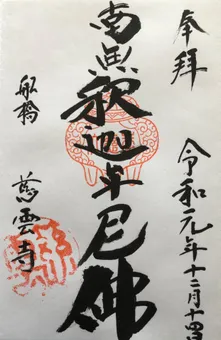 奉拝
令和元年十二月十四日
南無釈迦牟尼佛
船橋
慈雲寺